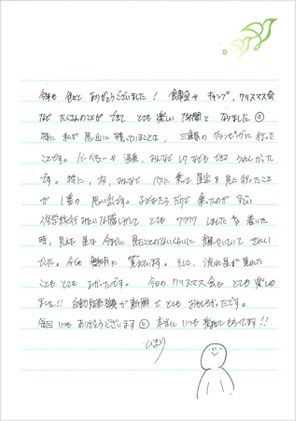 今年も色々と ありがとうございました! 食事会や キャンプ、クリスマス会
など たくさんのことが できて とても 楽しい 1年間と なりました
特に 私が 思い出に 残っていることは、三重県の グランピングに 行った
ことです。バーベキューや 温泉、みんなで いろいろ できて うれしかった
です。特に、夜、みんなで バスに 乗って 星空を 見に 行ったこと
が 1番の 思い出です。子どもたちだけで 乗ったのが すごい
修学旅行みたいな感じがして とても ワクワク しました 着いた
時、見えた 星は 今までに 見たことのないくらいに 輝いていて きれい
でした。今でも 鮮明に 覚えています。そして、流れ星が 見れた
ことも とても よかったです。 今日の クリスマス会も とても 楽しめ
ました!! 自動販売機が 新鮮で とても おもしろかったです。
毎回 いつも ありがとうございます 本当に いつも 楽しませてもらってます!!
ひまり